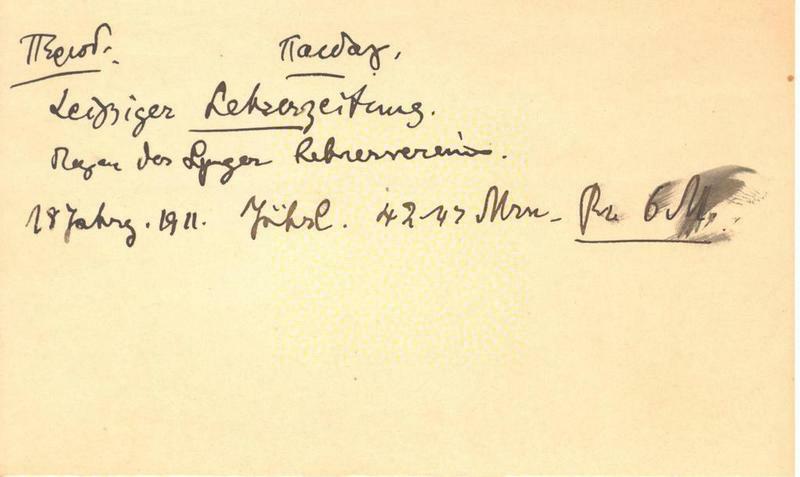 Період. Педаг.
Leipziger Lehrerzeitung.
Organ des Lpzger Lehrervereins.
18 Jahrg. 1911. Jährl. 42-47 Nrn - Pr. 6 M.